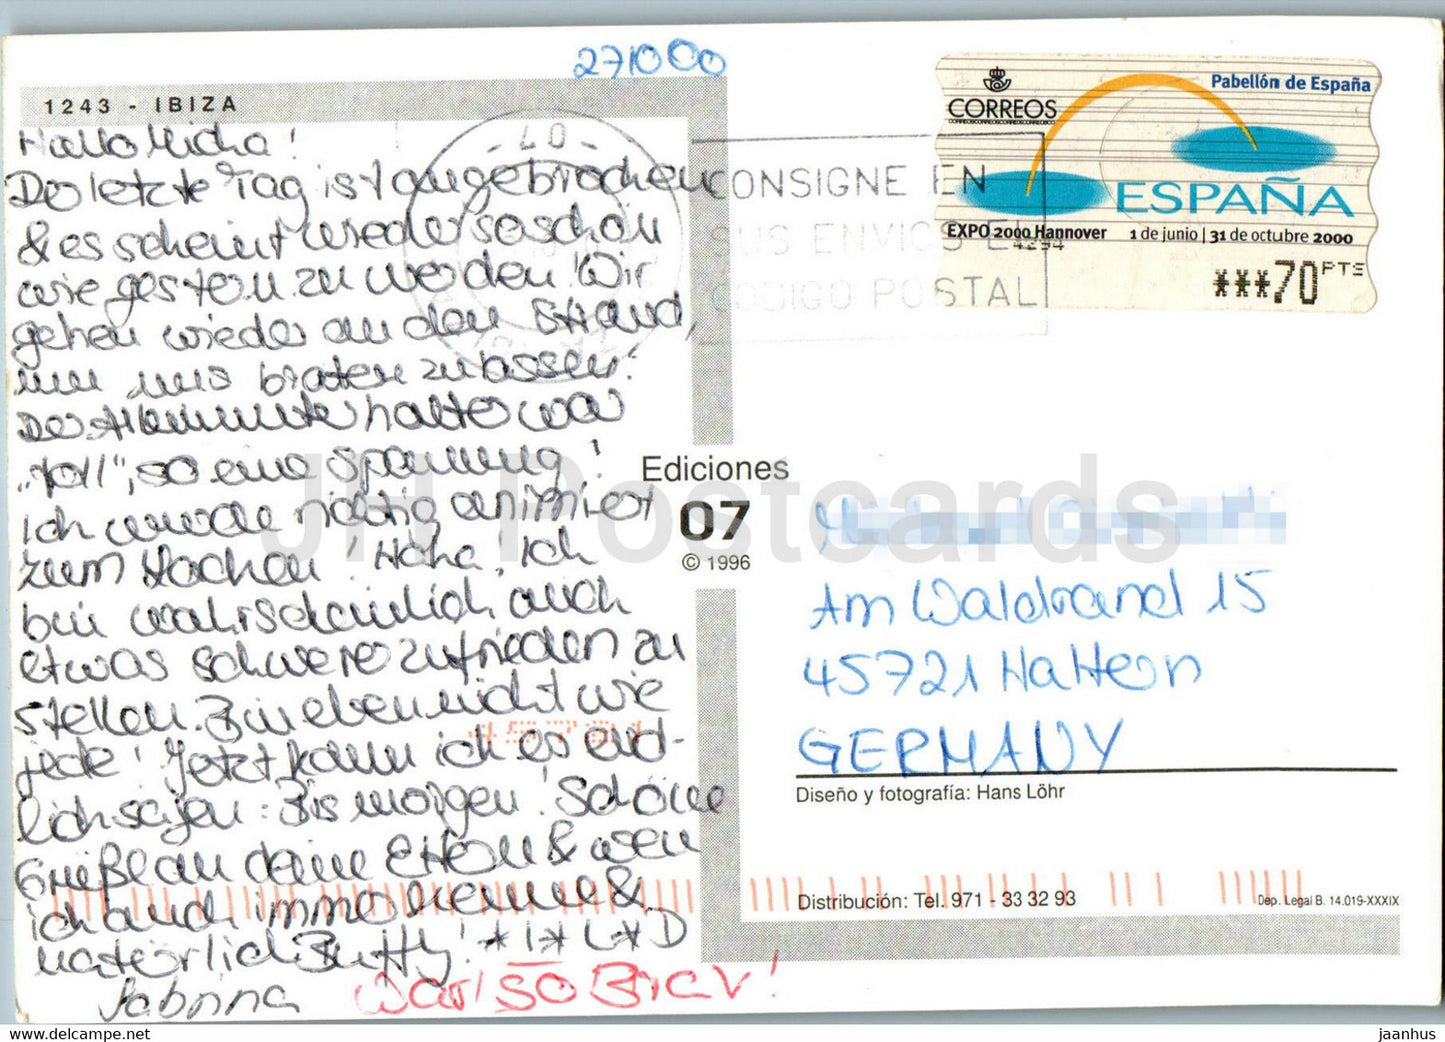 271000
1243 - IBIZA
Hallo Micha!
Der letzte Tag ist angebrochen
& es scheint wieder so schön
wie gestern zu werden! Wir
gehen wieder an den Strand,
um uns braten zu lassen!
Der Heimunterhalter war
„toll“, so eine Spannung!
Ich wurde richtig animiert
zum Hachen! Haha! Ich
bin wahrscheinlich auch
etwas schwerer zufrieden zu
stellen. Bin eben nicht wie
jede! Jetzt kann ich es end-
lich sagen: Bis morgen! Schöne
Grüße an deine Eltern & wen
ich auch immer kenne &
natürlich Buffy! *I*L*D
Sabrina
War ISO Brav!
CORREOS
Pabellón de España
ESPAÑA
EXPO 2000 Hannover 1 de junio | 31 de octubre 2000
4294
***70 PTS
- 07 -
CONSIGNE EN
SUS ENVIOS EL
CODIGO POSTAL
Ediciones
07
© 1996
Am Waldrand 15
45721 Haltern
GERMANY
Diseño y fotografía: Hans Löhr
Distribución: Tel. 971 - 33 32 93
Dep. Legal B. 14.019-XXXIX
JH Postcards
www.delcampe.net
jaanhus